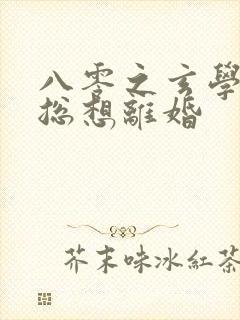 八零之玄學
総想離婚
芥末味冰紅茶